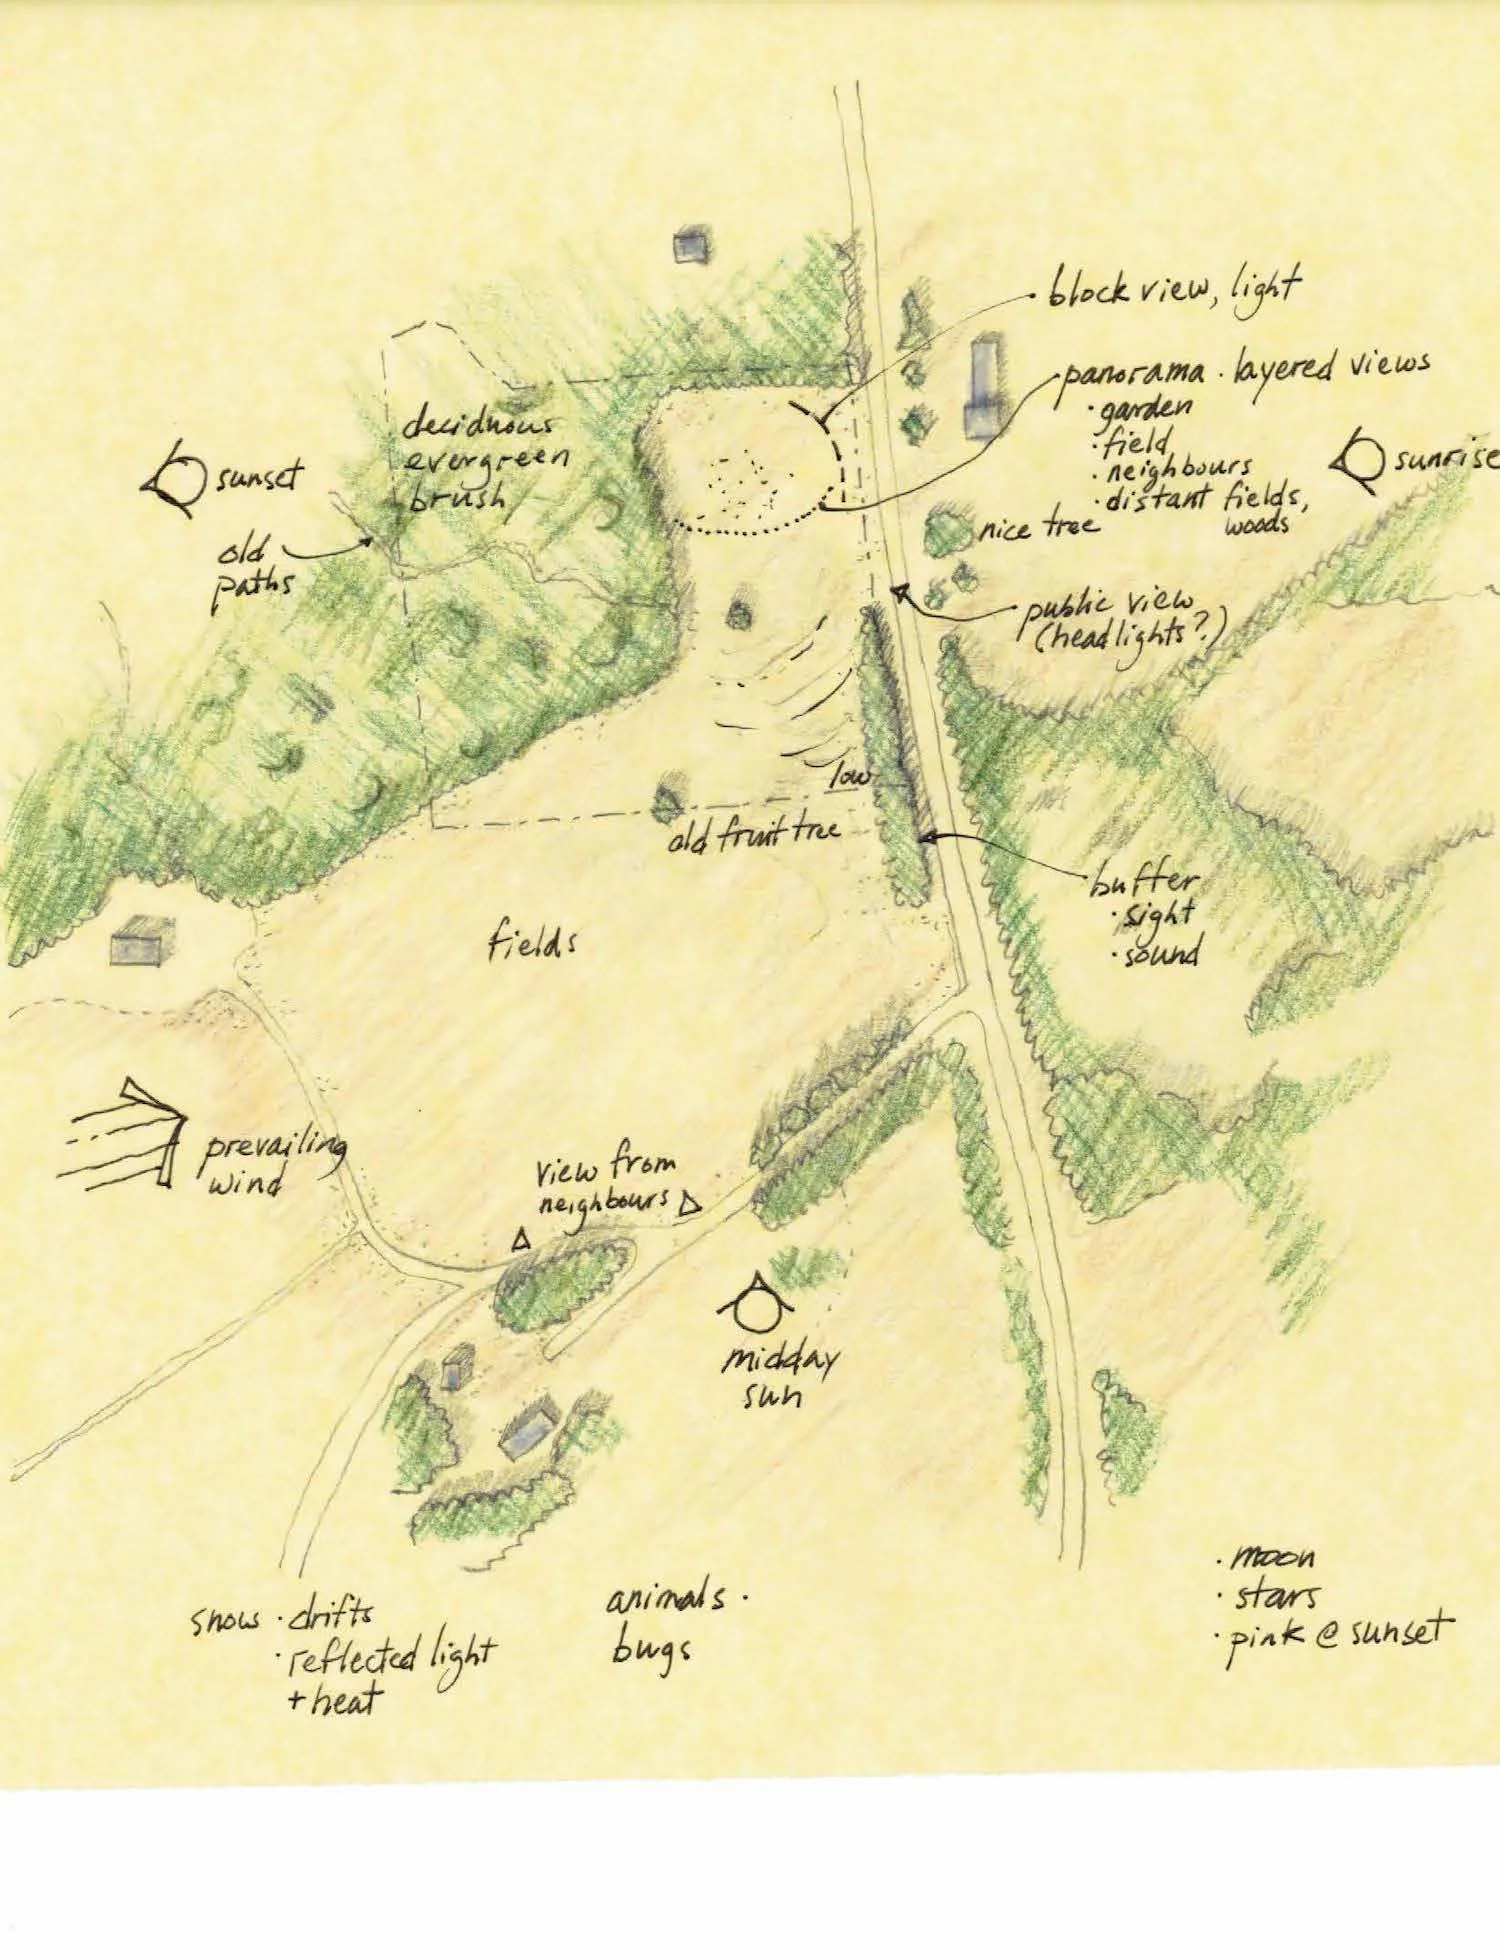 block view, light
panorama · layered views
· garden
· field
· neighbours
· distant fields,
woods
sunrise
deciduous
evergreen
brush
sunset
old
paths
nice tree
public view
(headlights?)
low
old fruit tree
buffer
· sight
· sound
fields
prevailing
wind
view from
neighbours
midday
sun
snow · drifts
· reflected light
+ heat
animals ·
bugs
· moon
· stars
· pink @ sunset